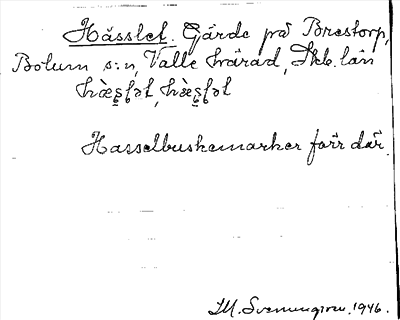 Hässlet. Gärde på Brestorp,
Bolum s:n, Valle härad, Skb. län
hæ̀s̠lət, hæ̀s̠lət
Hasselbuskemarker förr där.
M. Svenungson. 1946.